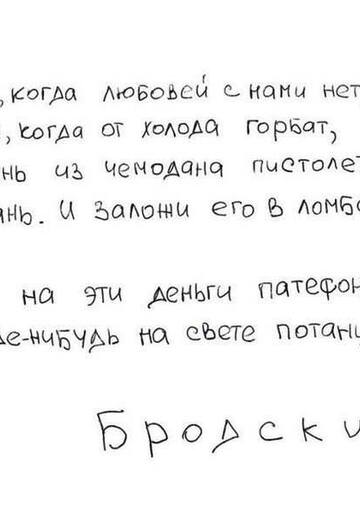 , когда любовей с нами нет
, когда от холода горбат,
нь из чемодана пистолет
ань. И заложи его в ломб
на эти деньги патефон
де-нибудь на свете потанц
Бродски